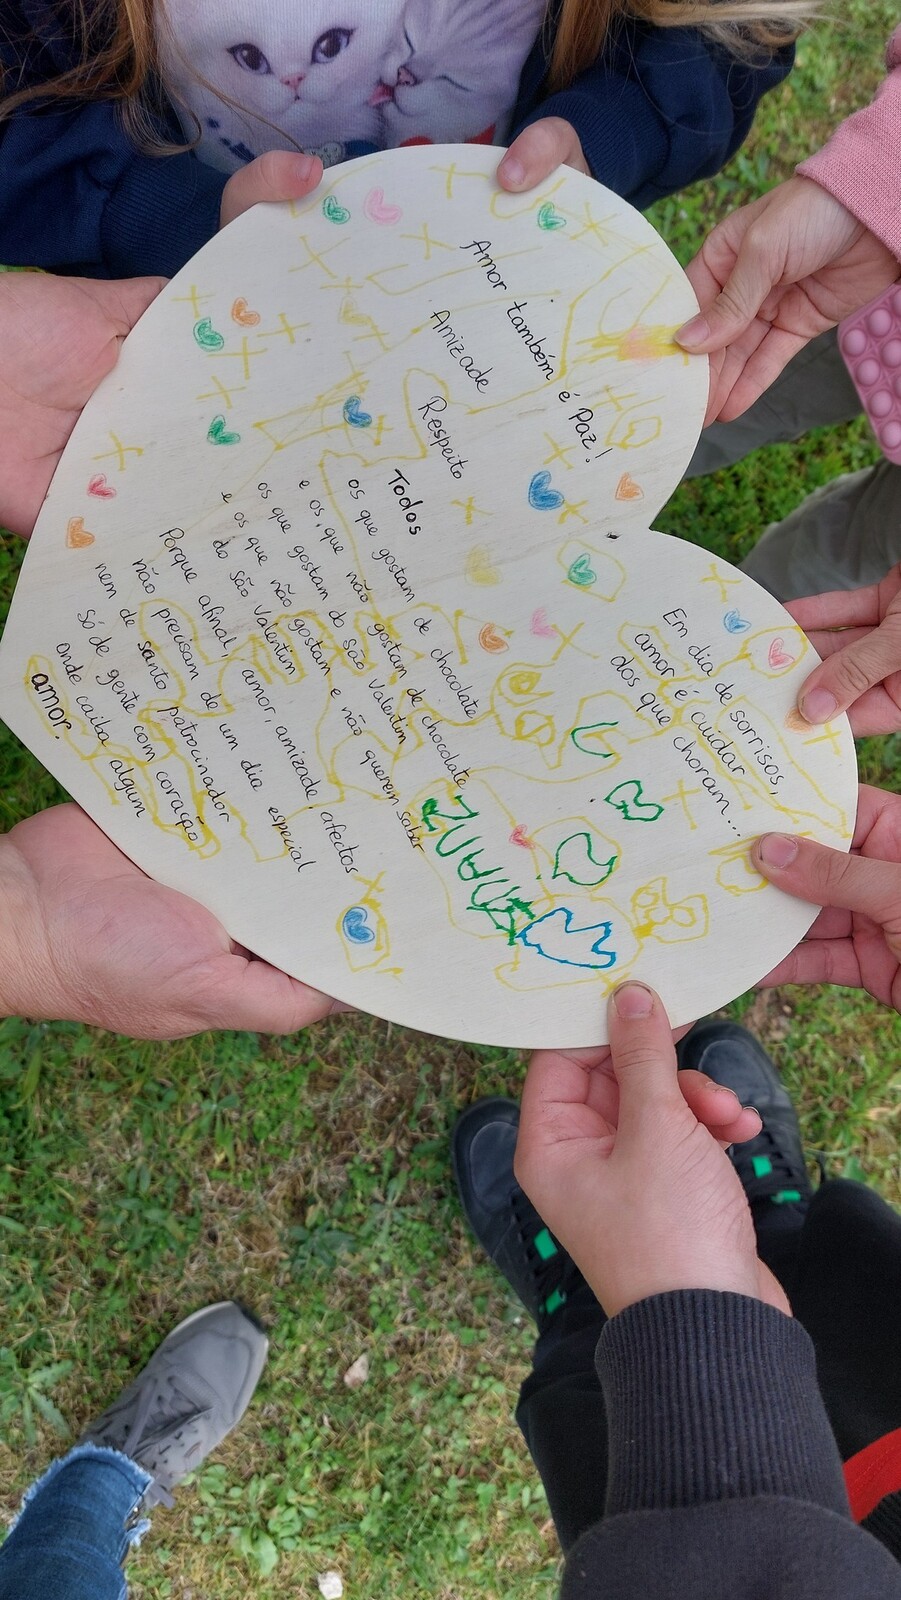 Amor também é Paz!
Amizade
Respeito
Todos
os que gostam de chocolate
e os, que não gostam de chocolate
os que gostam do são Valentim
e os que não gostam e não querem saber
do são Valentim
Porque afinal, amor, amizade, afectos
não precisam de um dia especial
nem de santo patrocinador
só de gente com coração
onde caiba algum
amor.
Em dia de sorrisos,
amor é cuidar
dos que choram...